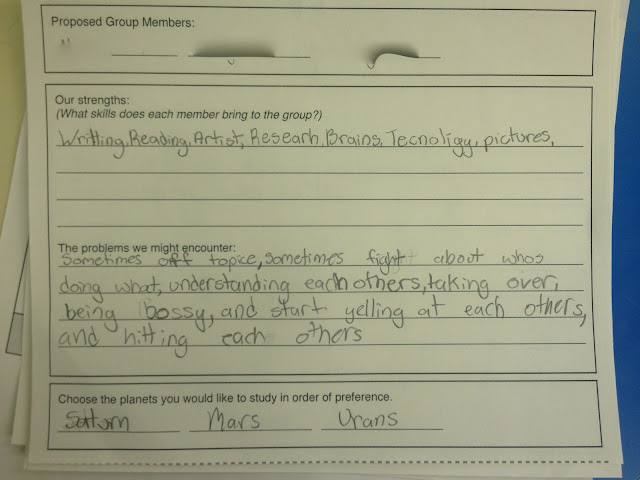 Proposed Group Members:
Our strengths:
(What skills does each member bring to the group?)
Writting, Reading, Artist, Researh, Brains, Tecnoligy, pictures,
The problems we might encounter:
Sometimes off topice, sometimes fight about whos
doing what, understanding each others, taking over,
being bossy, and start yelling at each others,
and hitting each others
Choose the planets you would like to study in order of preference.
Mars Urans